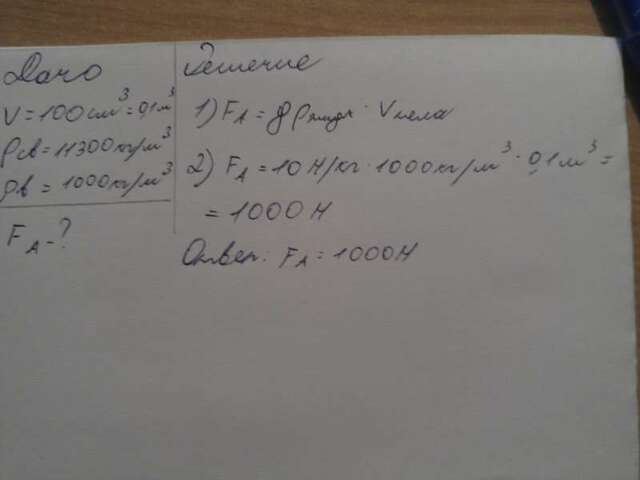 Дано
V = 100 см³ = 0,1 м³
ρсв = 11300 кг/м³
ρв = 1000 кг/м³
F A - ?
Решение
1) F A = g ρжидк · Vтела
2) F A = 10 Н/кг · 1000 кг/м³ · 0,1 м³ =
= 1000 Н
Ответ: F A = 1000 Н